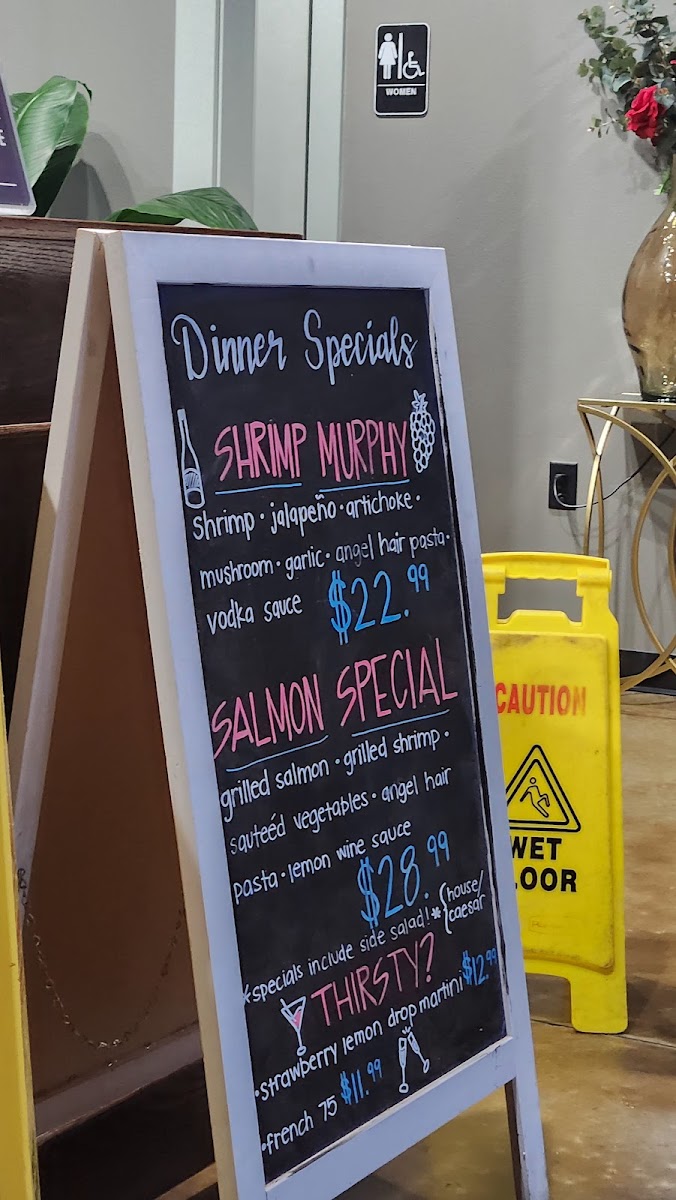 WOMEN
Dinner Specials
SHRIMP MURPHY
shrimp • jalapeño • artichoke •
mushroom • garlic • angel hair pasta •
vodka sauce $22.99
SALMON SPECIAL
grilled salmon • grilled shrimp •
sauteéd vegetables • angel hair
pasta • lemon wine sauce
$28.99
*specials include side salad!* {house/
caesar
THIRSTY?
•strawberry lemon drop martini $12.99
•french 75 $11.99
CAUTION
WET
LOOR